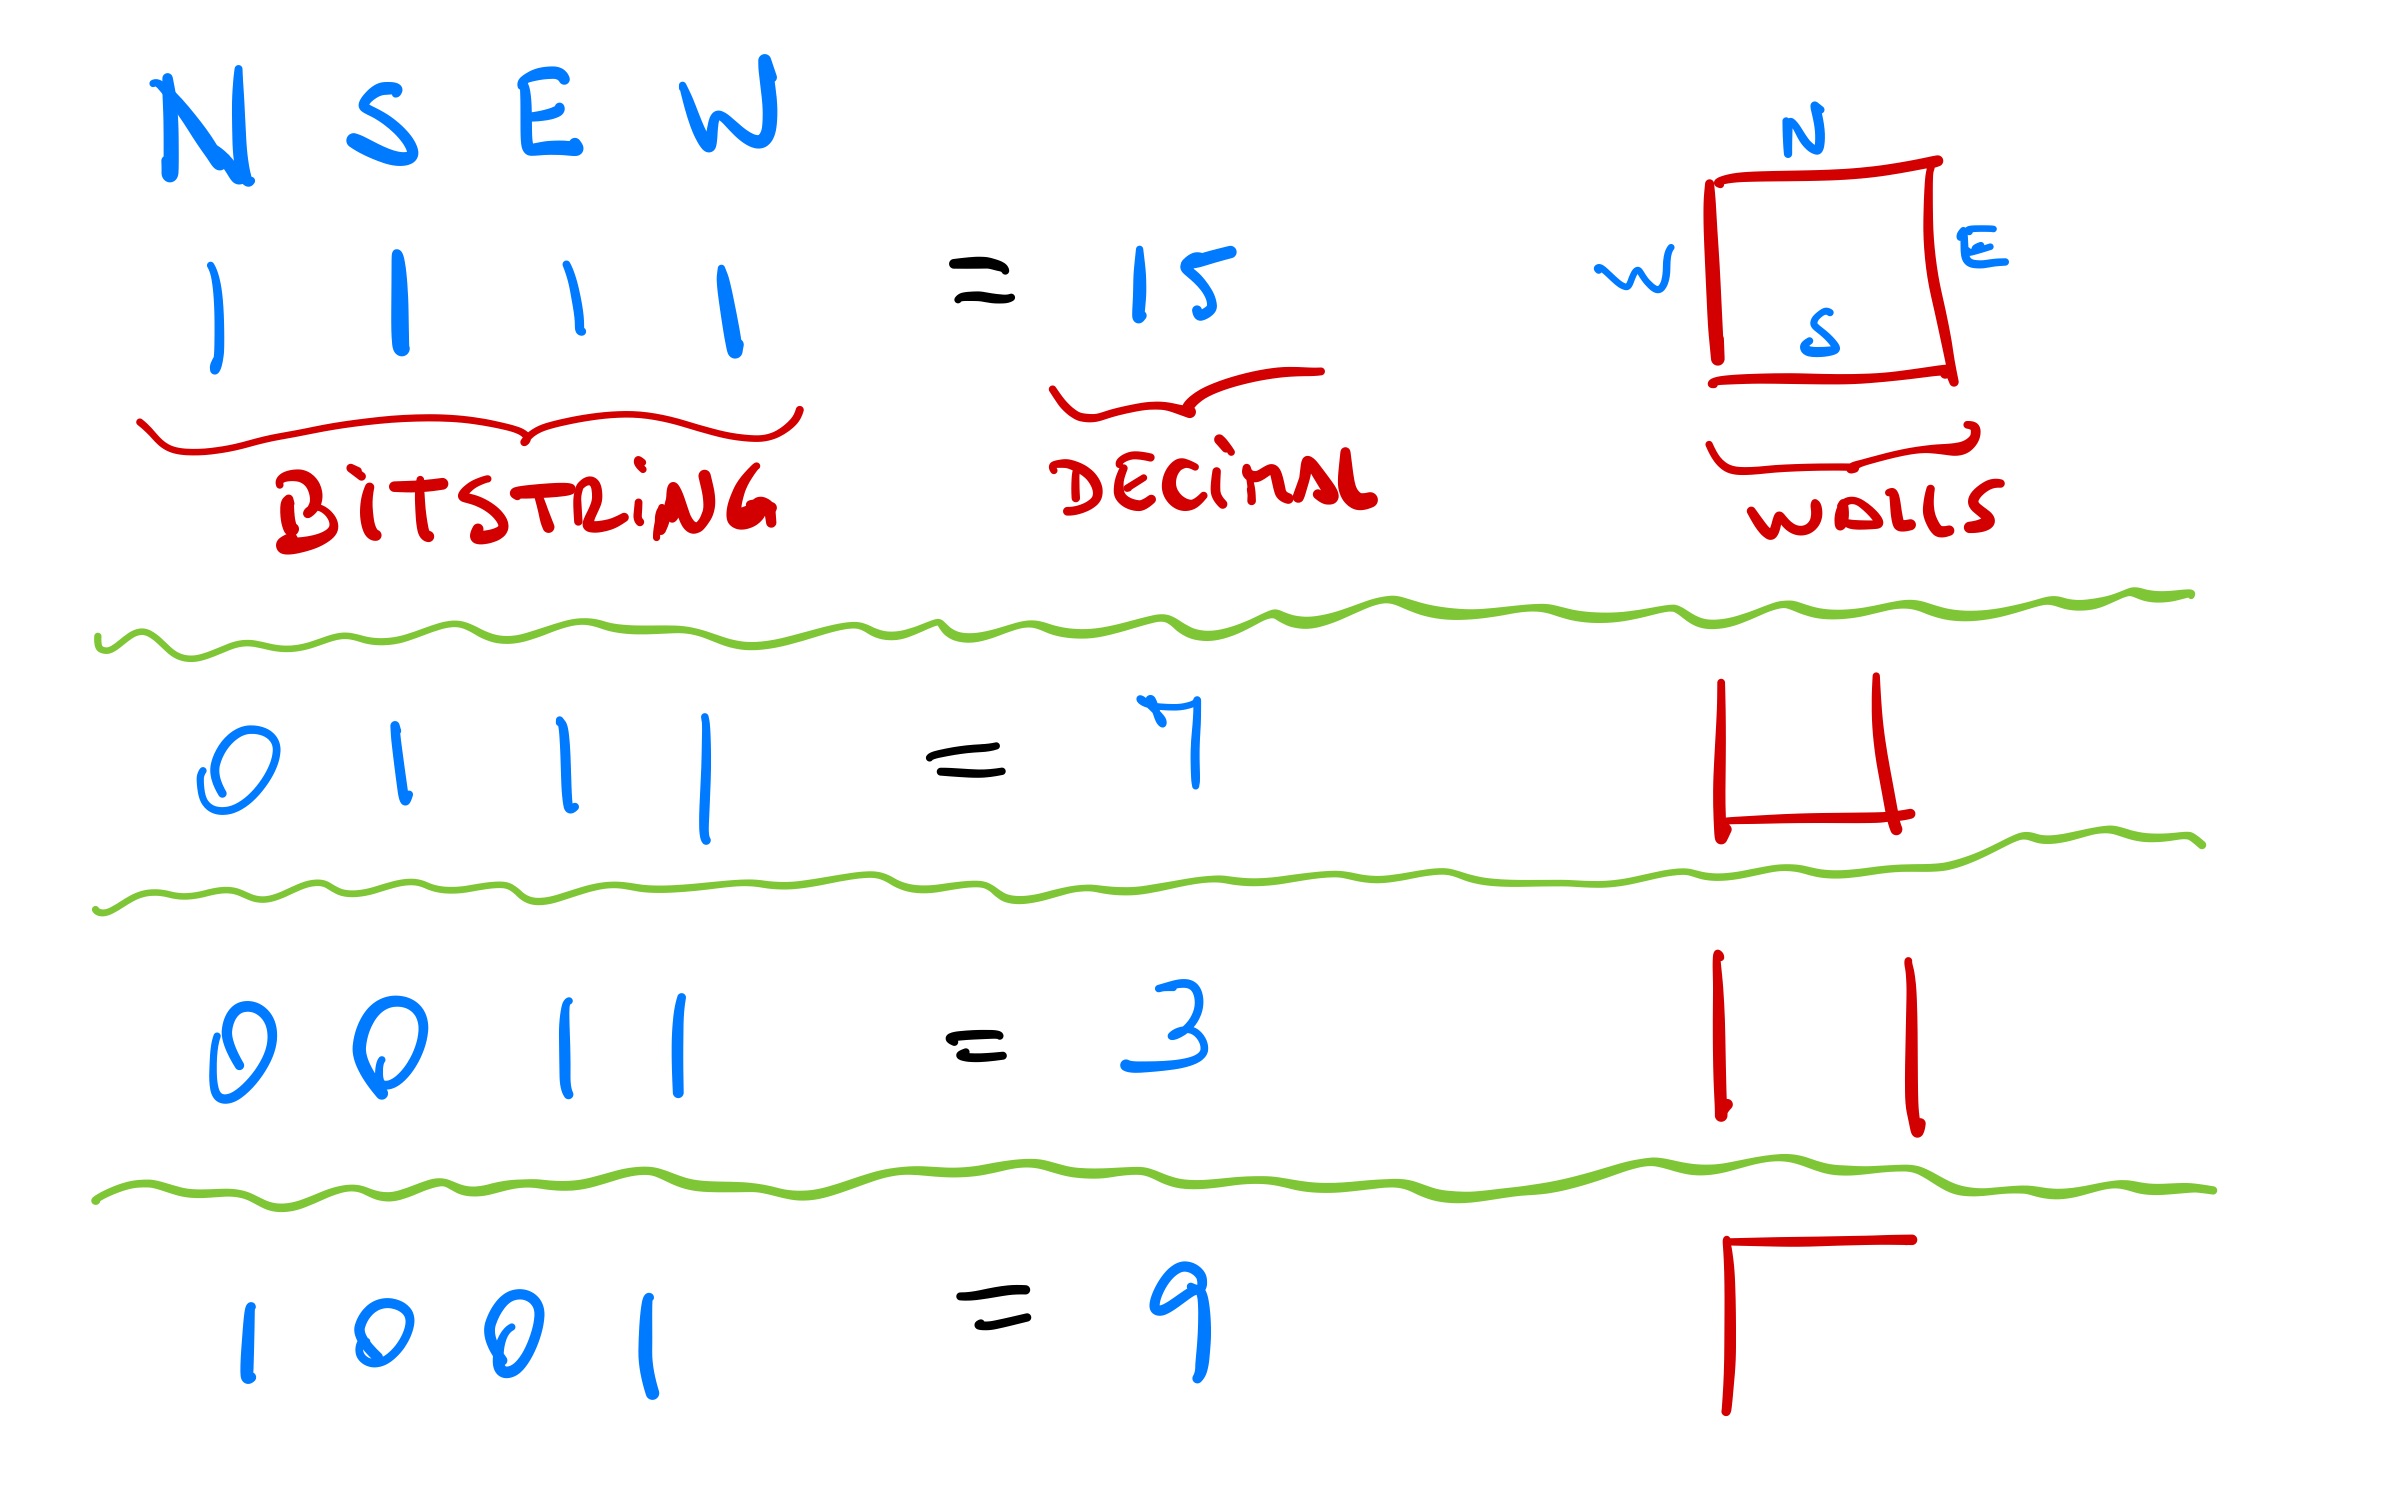 N S E W
N
1 1 1 1 = 15
W E
S
BiTSTRiNG DECiMAL WALLS
0 1 1 1 = 7
0 0 1 1 = 3
1 0 0 1 = 9